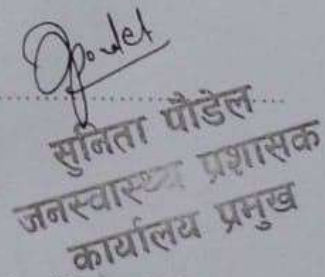 सुनिता पौडेल
जनस्वास्थ्य प्रशासक
कार्यालय प्रमुख